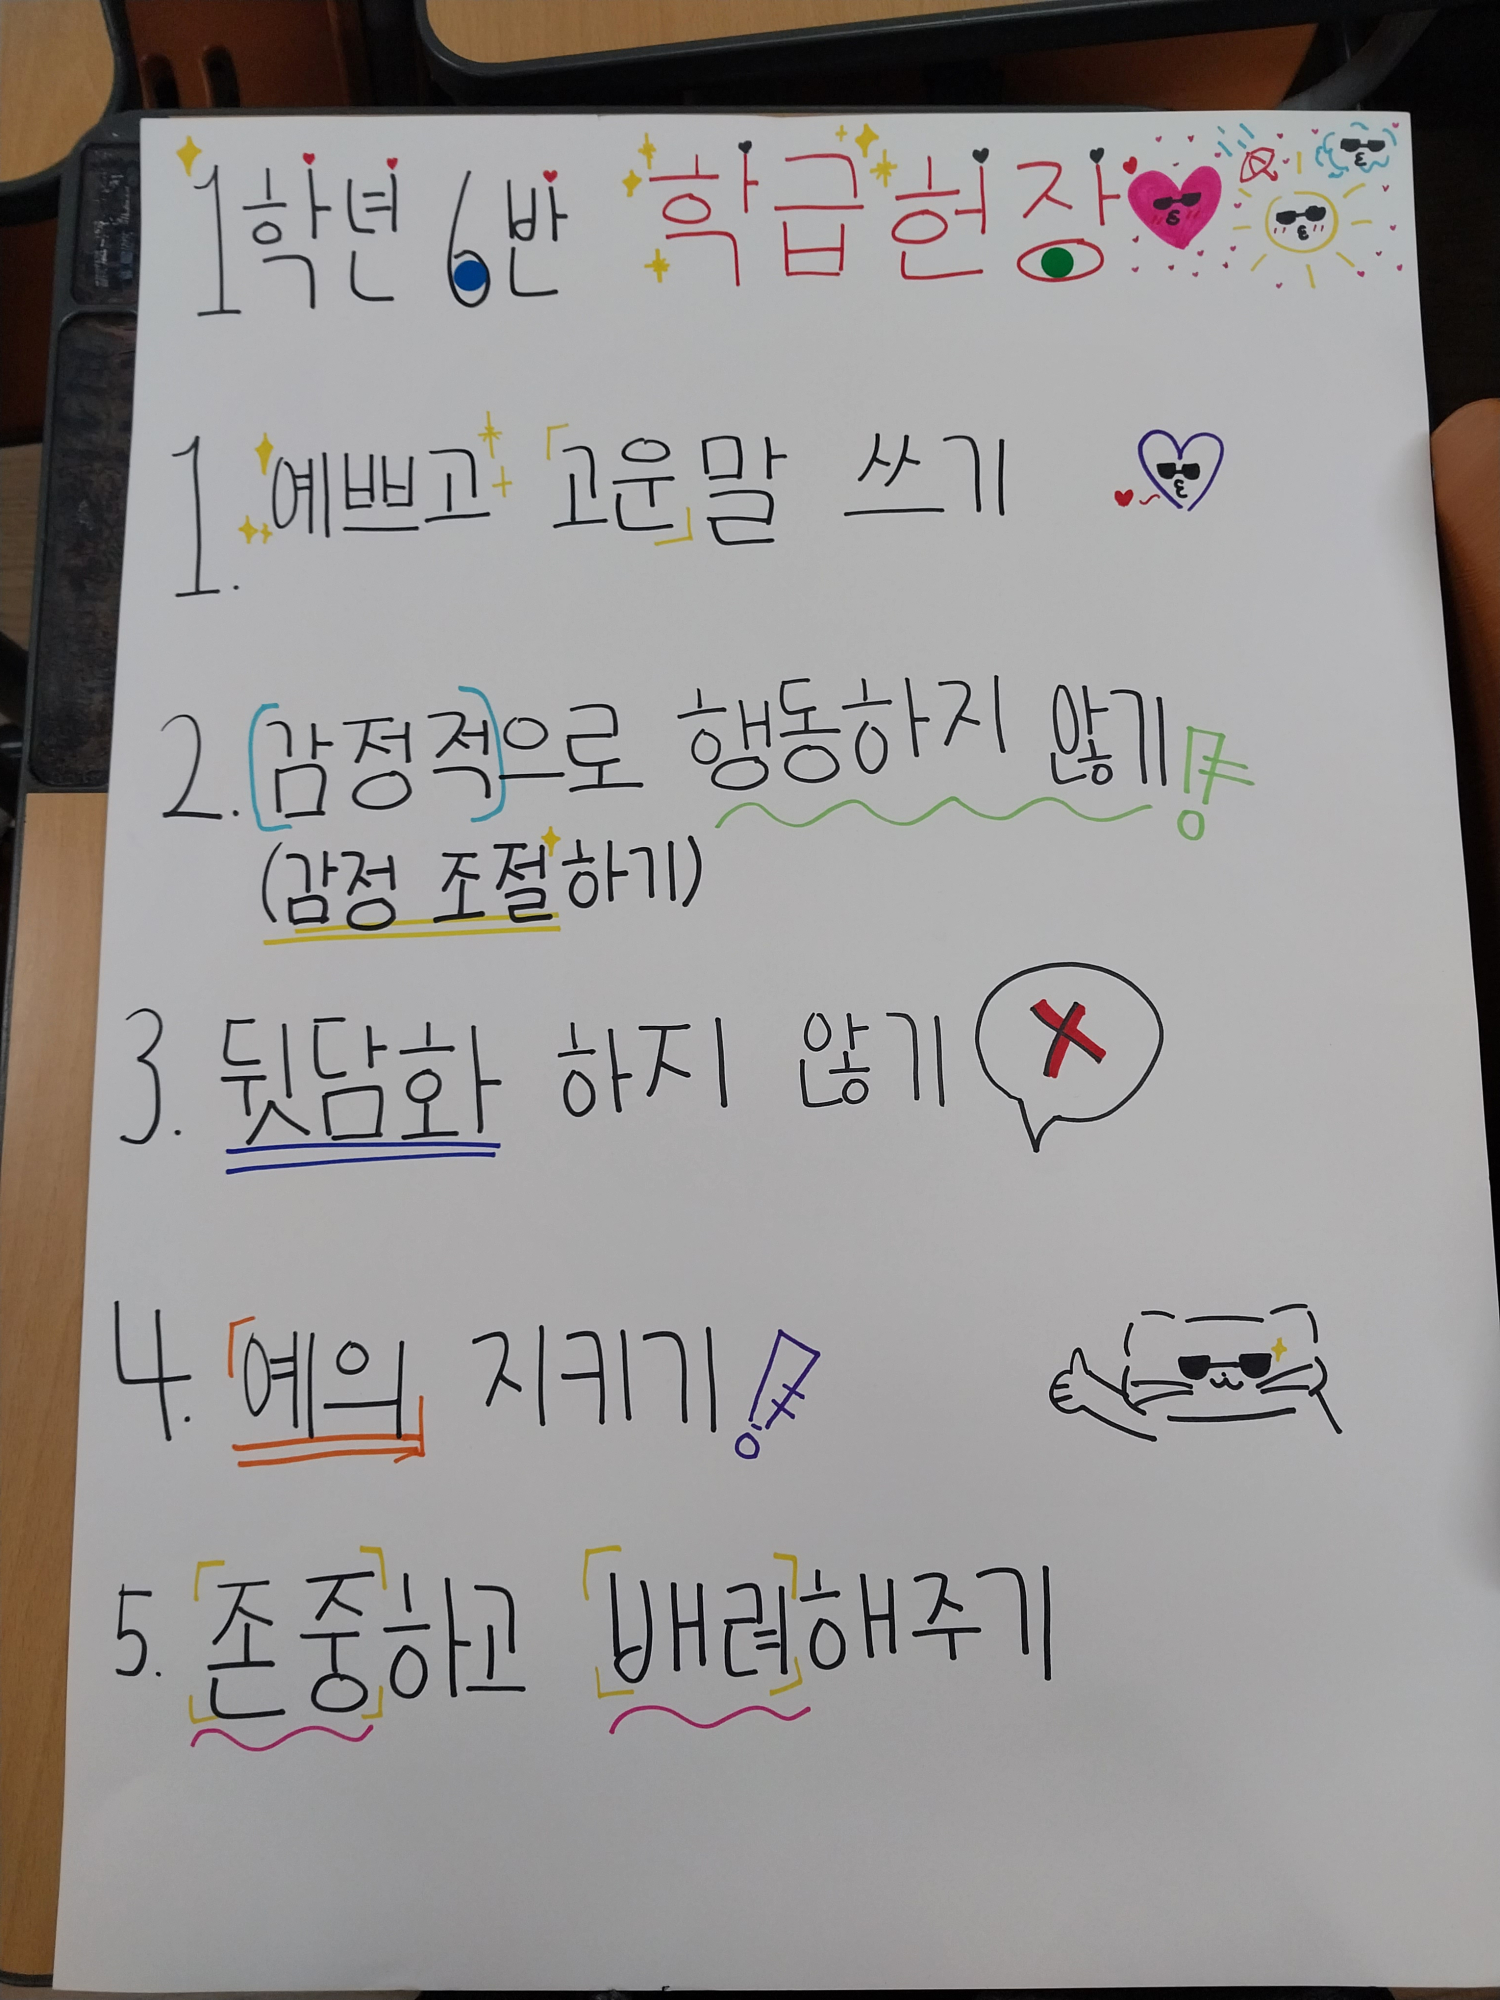 1학년 6반 학급헌장
1. 예쁘고 「고운」말 쓰기
2. [감정적]으로 행동하지 않기!
(감정 조절하기)
3. 뒷담화 하지 않기
4. 「예의」 지키기!
5. [존중]하고 [배려]해주기